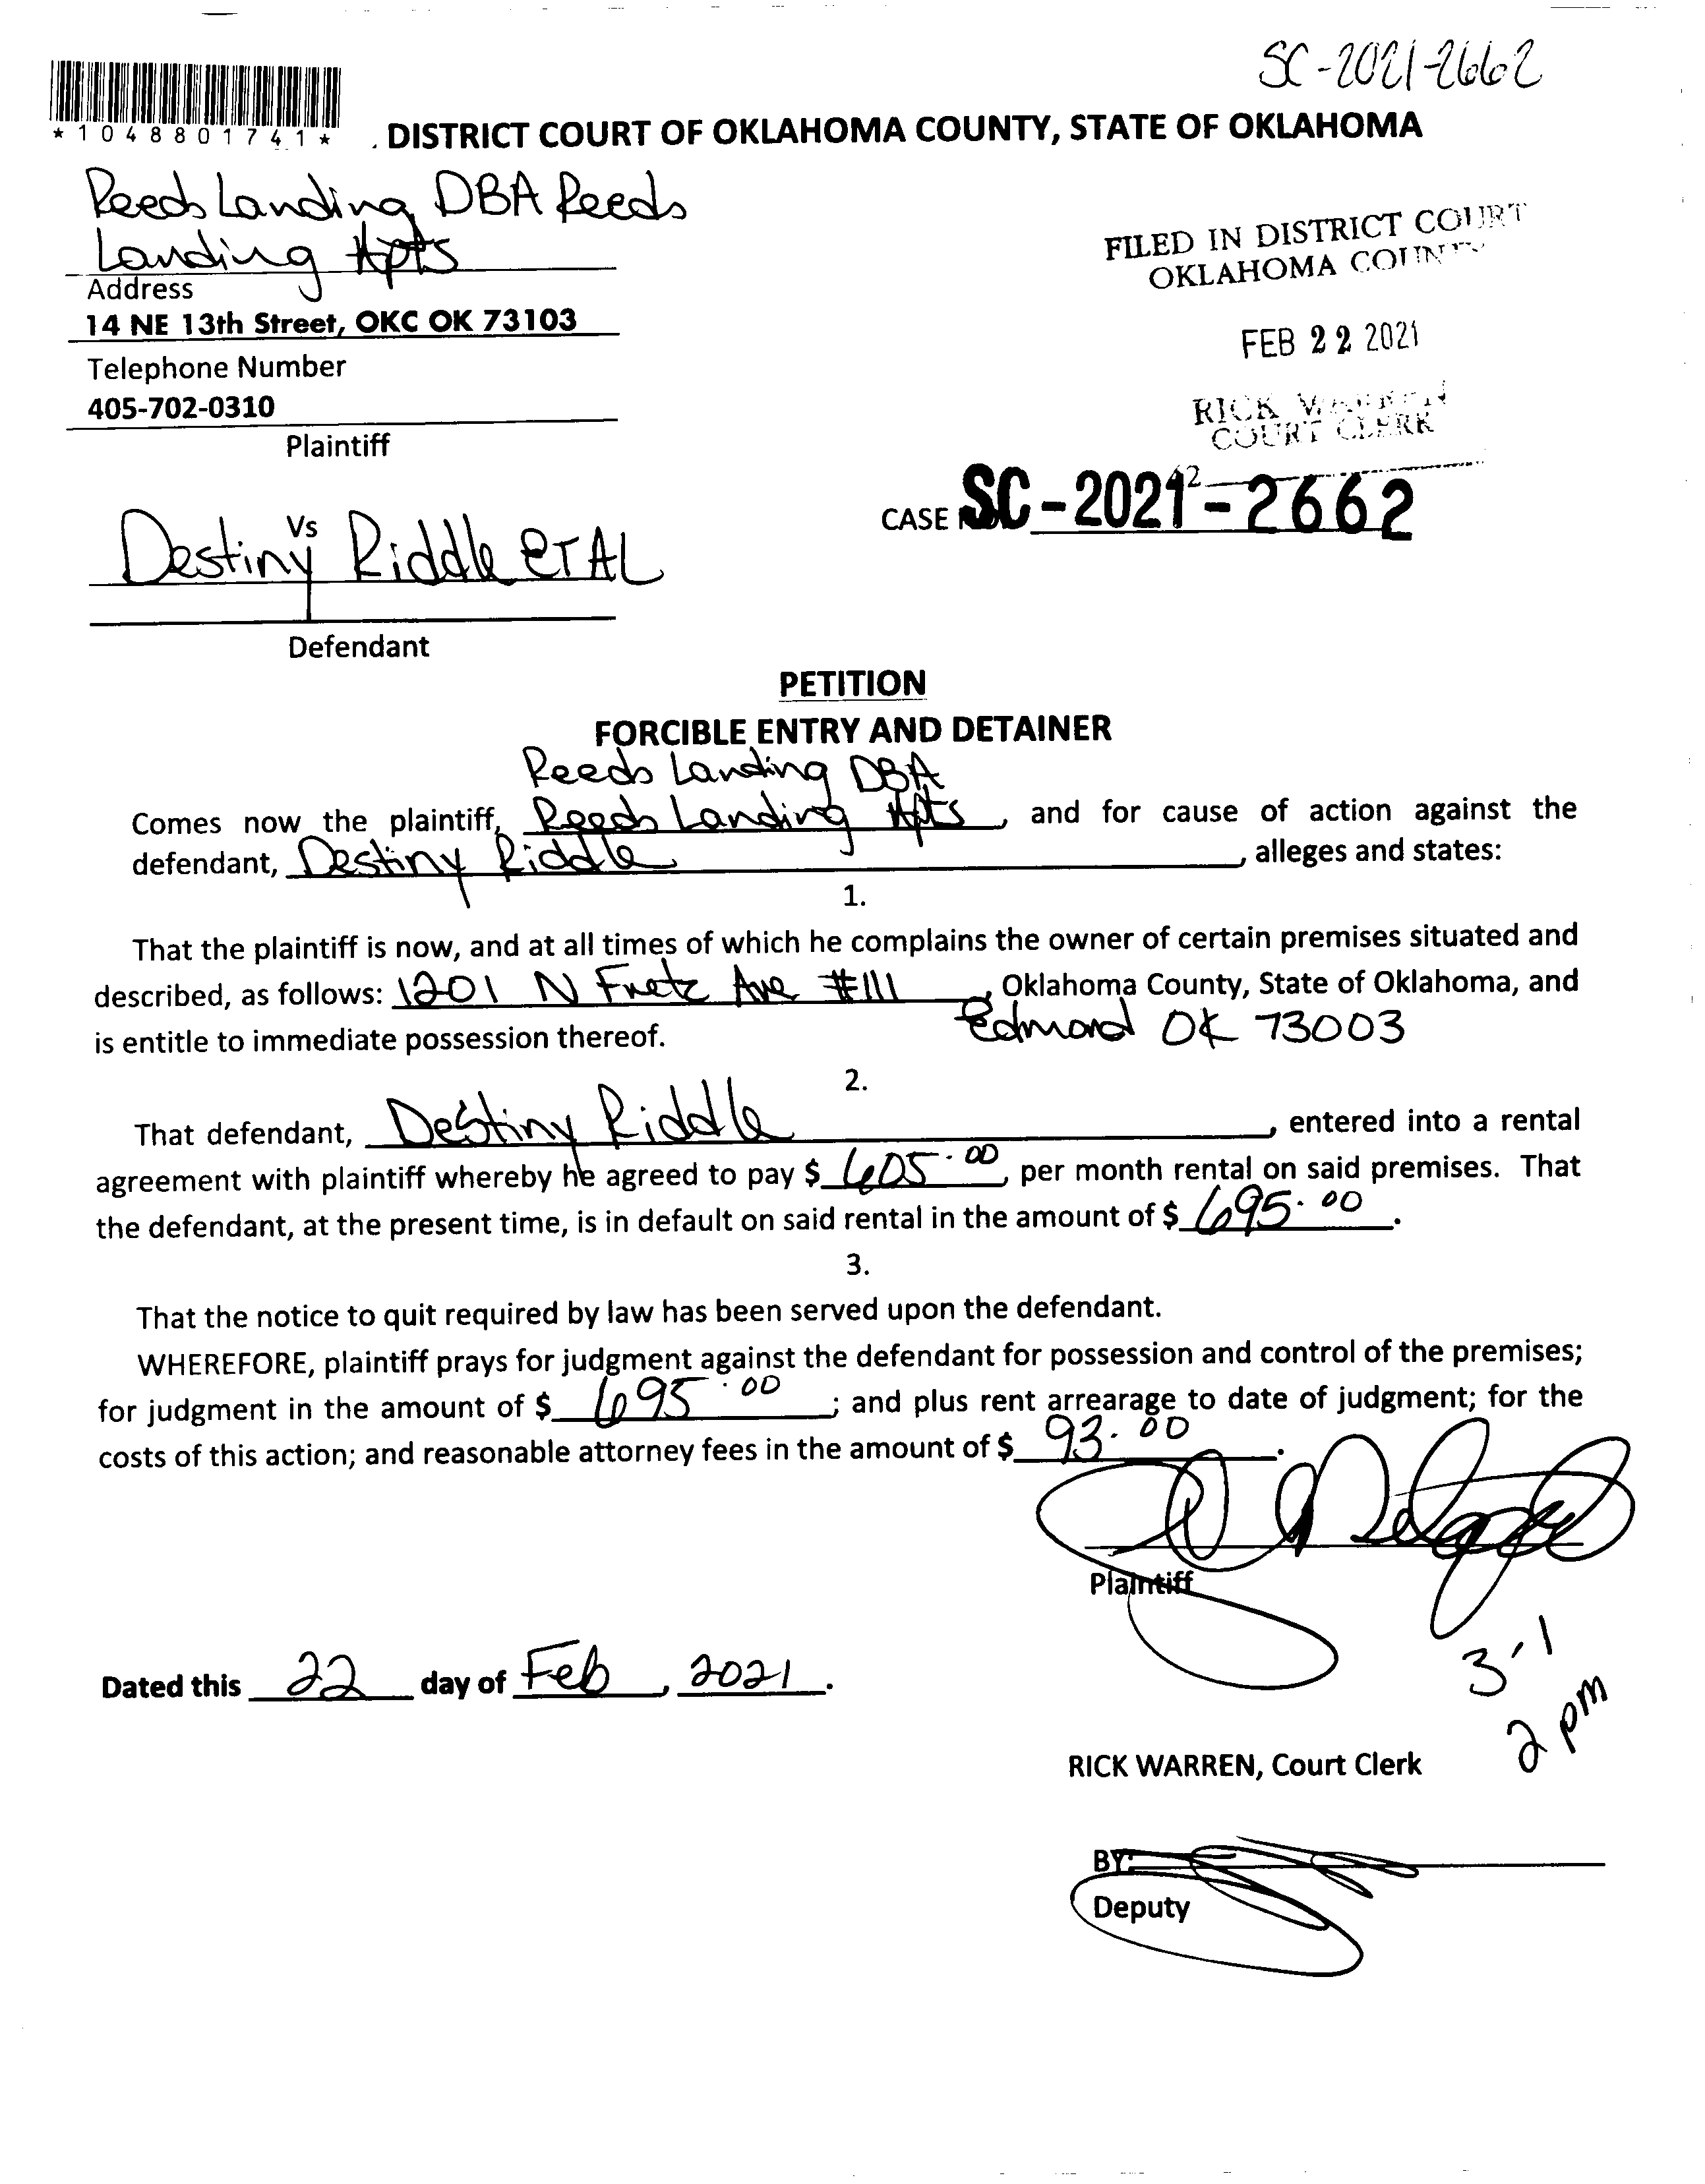 SC-2021-2662
*1048801741*
. DISTRICT COURT OF OKLAHOMA COUNTY, STATE OF OKLAHOMA
Reeds Landing DBA Reeds
Landing Apts
Address
14 NE 13th Street, OKC OK 73103
Telephone Number
405-702-0310
Plaintiff
FILED IN DISTRICT COURT
OKLAHOMA COUNTY
FEB 22 2021
RICK WARREN
COURT CLERK
42
CASE NO. SC-2021-2662
Vs
Destiny Riddle ET AL
Defendant
PETITION
FORCIBLE ENTRY AND DETAINER
Reeds Landing DBA
Comes now the plaintiff, Reeds Landing Apts, and for cause of action against the
defendant, Destiny Riddle, alleges and states:
1.
That the plaintiff is now, and at all times of which he complains the owner of certain premises situated and
described, as follows: 1201 N Fretz Ave #111, Oklahoma County, State of Oklahoma, and
is entitle to immediate possession thereof. Edmond OK 73003
2.
That defendant, Destiny Riddle, entered into a rental
agreement with plaintiff whereby he agreed to pay $ 605.00, per month rental on said premises. That
the defendant, at the present time, is in default on said rental in the amount of $ 695.00.
3.
That the notice to quit required by law has been served upon the defendant.
WHEREFORE, plaintiff prays for judgment against the defendant for possession and control of the premises;
for judgment in the amount of $ 695.00; and plus rent arrearage to date of judgment; for the
costs of this action; and reasonable attorney fees in the amount of $ 93.00.
Plaintiff
3-1
2 pm
Dated this 22 day of Feb, 2021.
RICK WARREN, Court Clerk
BY:
Deputy